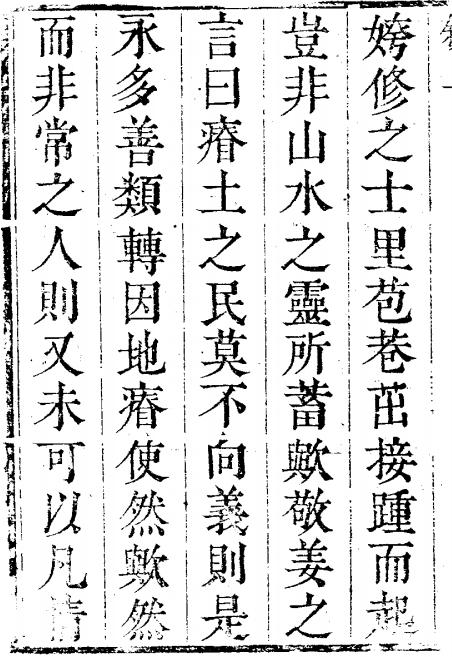 姱修之士里苞巷茁接踵而起
豈非山水之靈所蓄歟敬姜之
言曰瘠土之民莫不向義則是
永多善類轉因地瘠使然歟然
而非常之人則又未可以凡情